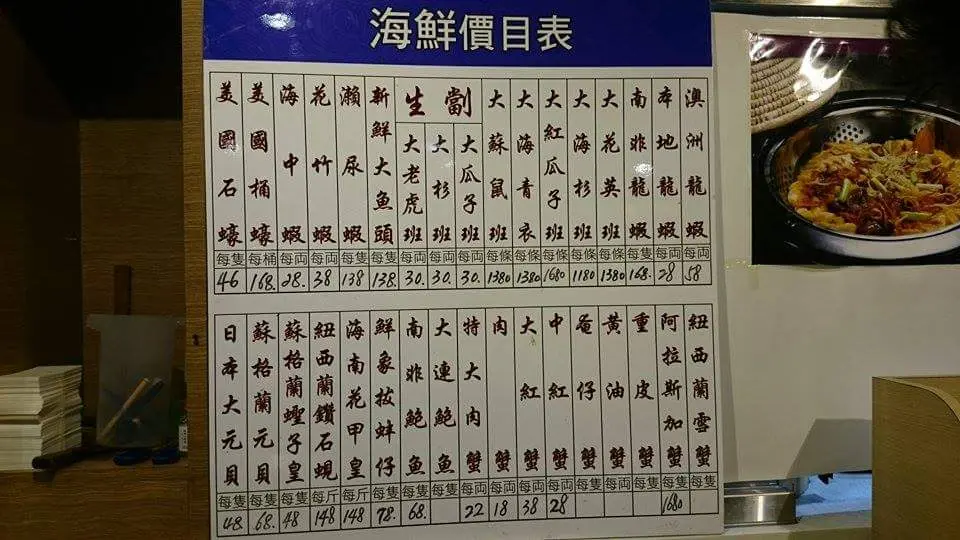 海鮮價目表
美國石蠔 每隻 46
美國桶蠔 每桶 168.
海中蝦 每両 28.
花竹蝦 每両 38
瀨尿蝦 每隻 138
新鮮大魚頭 每隻 138.
生劏
大老虎班 每両 30.
大杉班 每両 30.
大瓜子班 每両 30.
大蘇鼠班 每條 1380
大海青衣 每條 1380
大紅瓜子班 每條 1680
大海杉班 每條 1180
大花英班 每條 1380
南非龍蝦 每隻 168.
本地龍蝦 每両 28
澳洲龍蝦 每両 58
日本大元貝 每隻 48.
蘇格蘭元貝 每隻 68.
蘇格蘭蟶子皇 每隻 48
紐西蘭鑽石蜆 每斤 148
海南花甲皇 每斤 148
鮮象拔蚌仔 每隻 78.
南非鮑魚 每隻 68.
大連鮑魚 每隻
特大肉蟹 每両 22
肉蟹 每両 18
大紅蟹 每両 38
中紅蟹 每両 28
奄仔蟹 每隻
黃油蟹 每隻
重皮蟹 每隻
阿拉斯加蟹 每隻 1680
紐西蘭雪蟹 每隻